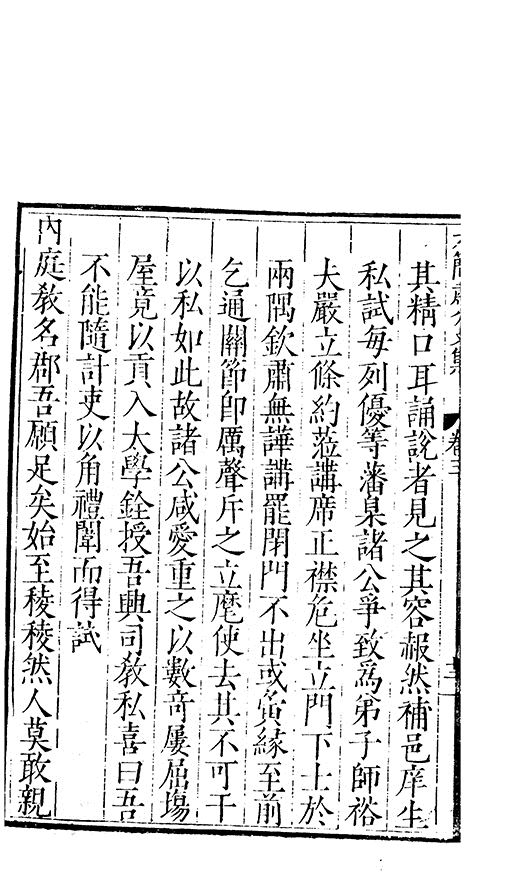 卷三
其精口耳誦說者見之其容赧然補邑庠生
私試每列優等藩臬諸公爭致為弟子師裕
夫嚴立條約蒞講席正襟危坐立門下士於
兩隅欽肅無譁講罷閉門不出或夤緣至前
乞通關節即厲聲斥之立麾使去其不可干
以私如此故諸公咸愛重之以數奇屢屈場
屋竟以貢入太學銓授吾興司教私喜曰吾
不能隨計吏以角禮闈而得試
內庭教名郡吾願足矣始至稜稜然人莫敢親